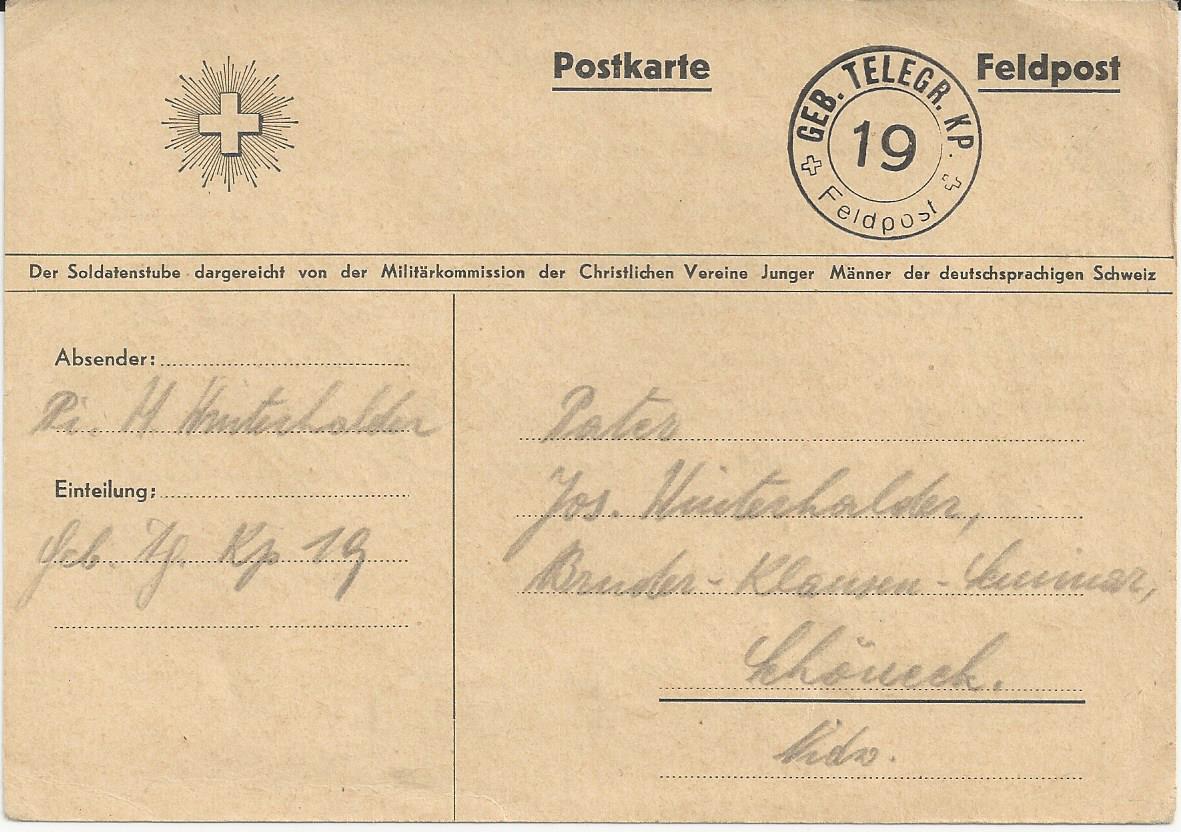 Postkarte
Feldpost
GEB. TELEGR. KP.
19
Feldpost
Der Soldatenstube dargereicht von der Militärkommission der Christlichen Vereine Junger Männer der deutschsprachigen Schweiz
Absender:
Pi. H Winterhalder
Einteilung:
Geb. Tg. Kp 19
Pater
Jos. Winterhalder,
Bruder-Klausen-Seminar,
Schöneck.
Nidw.